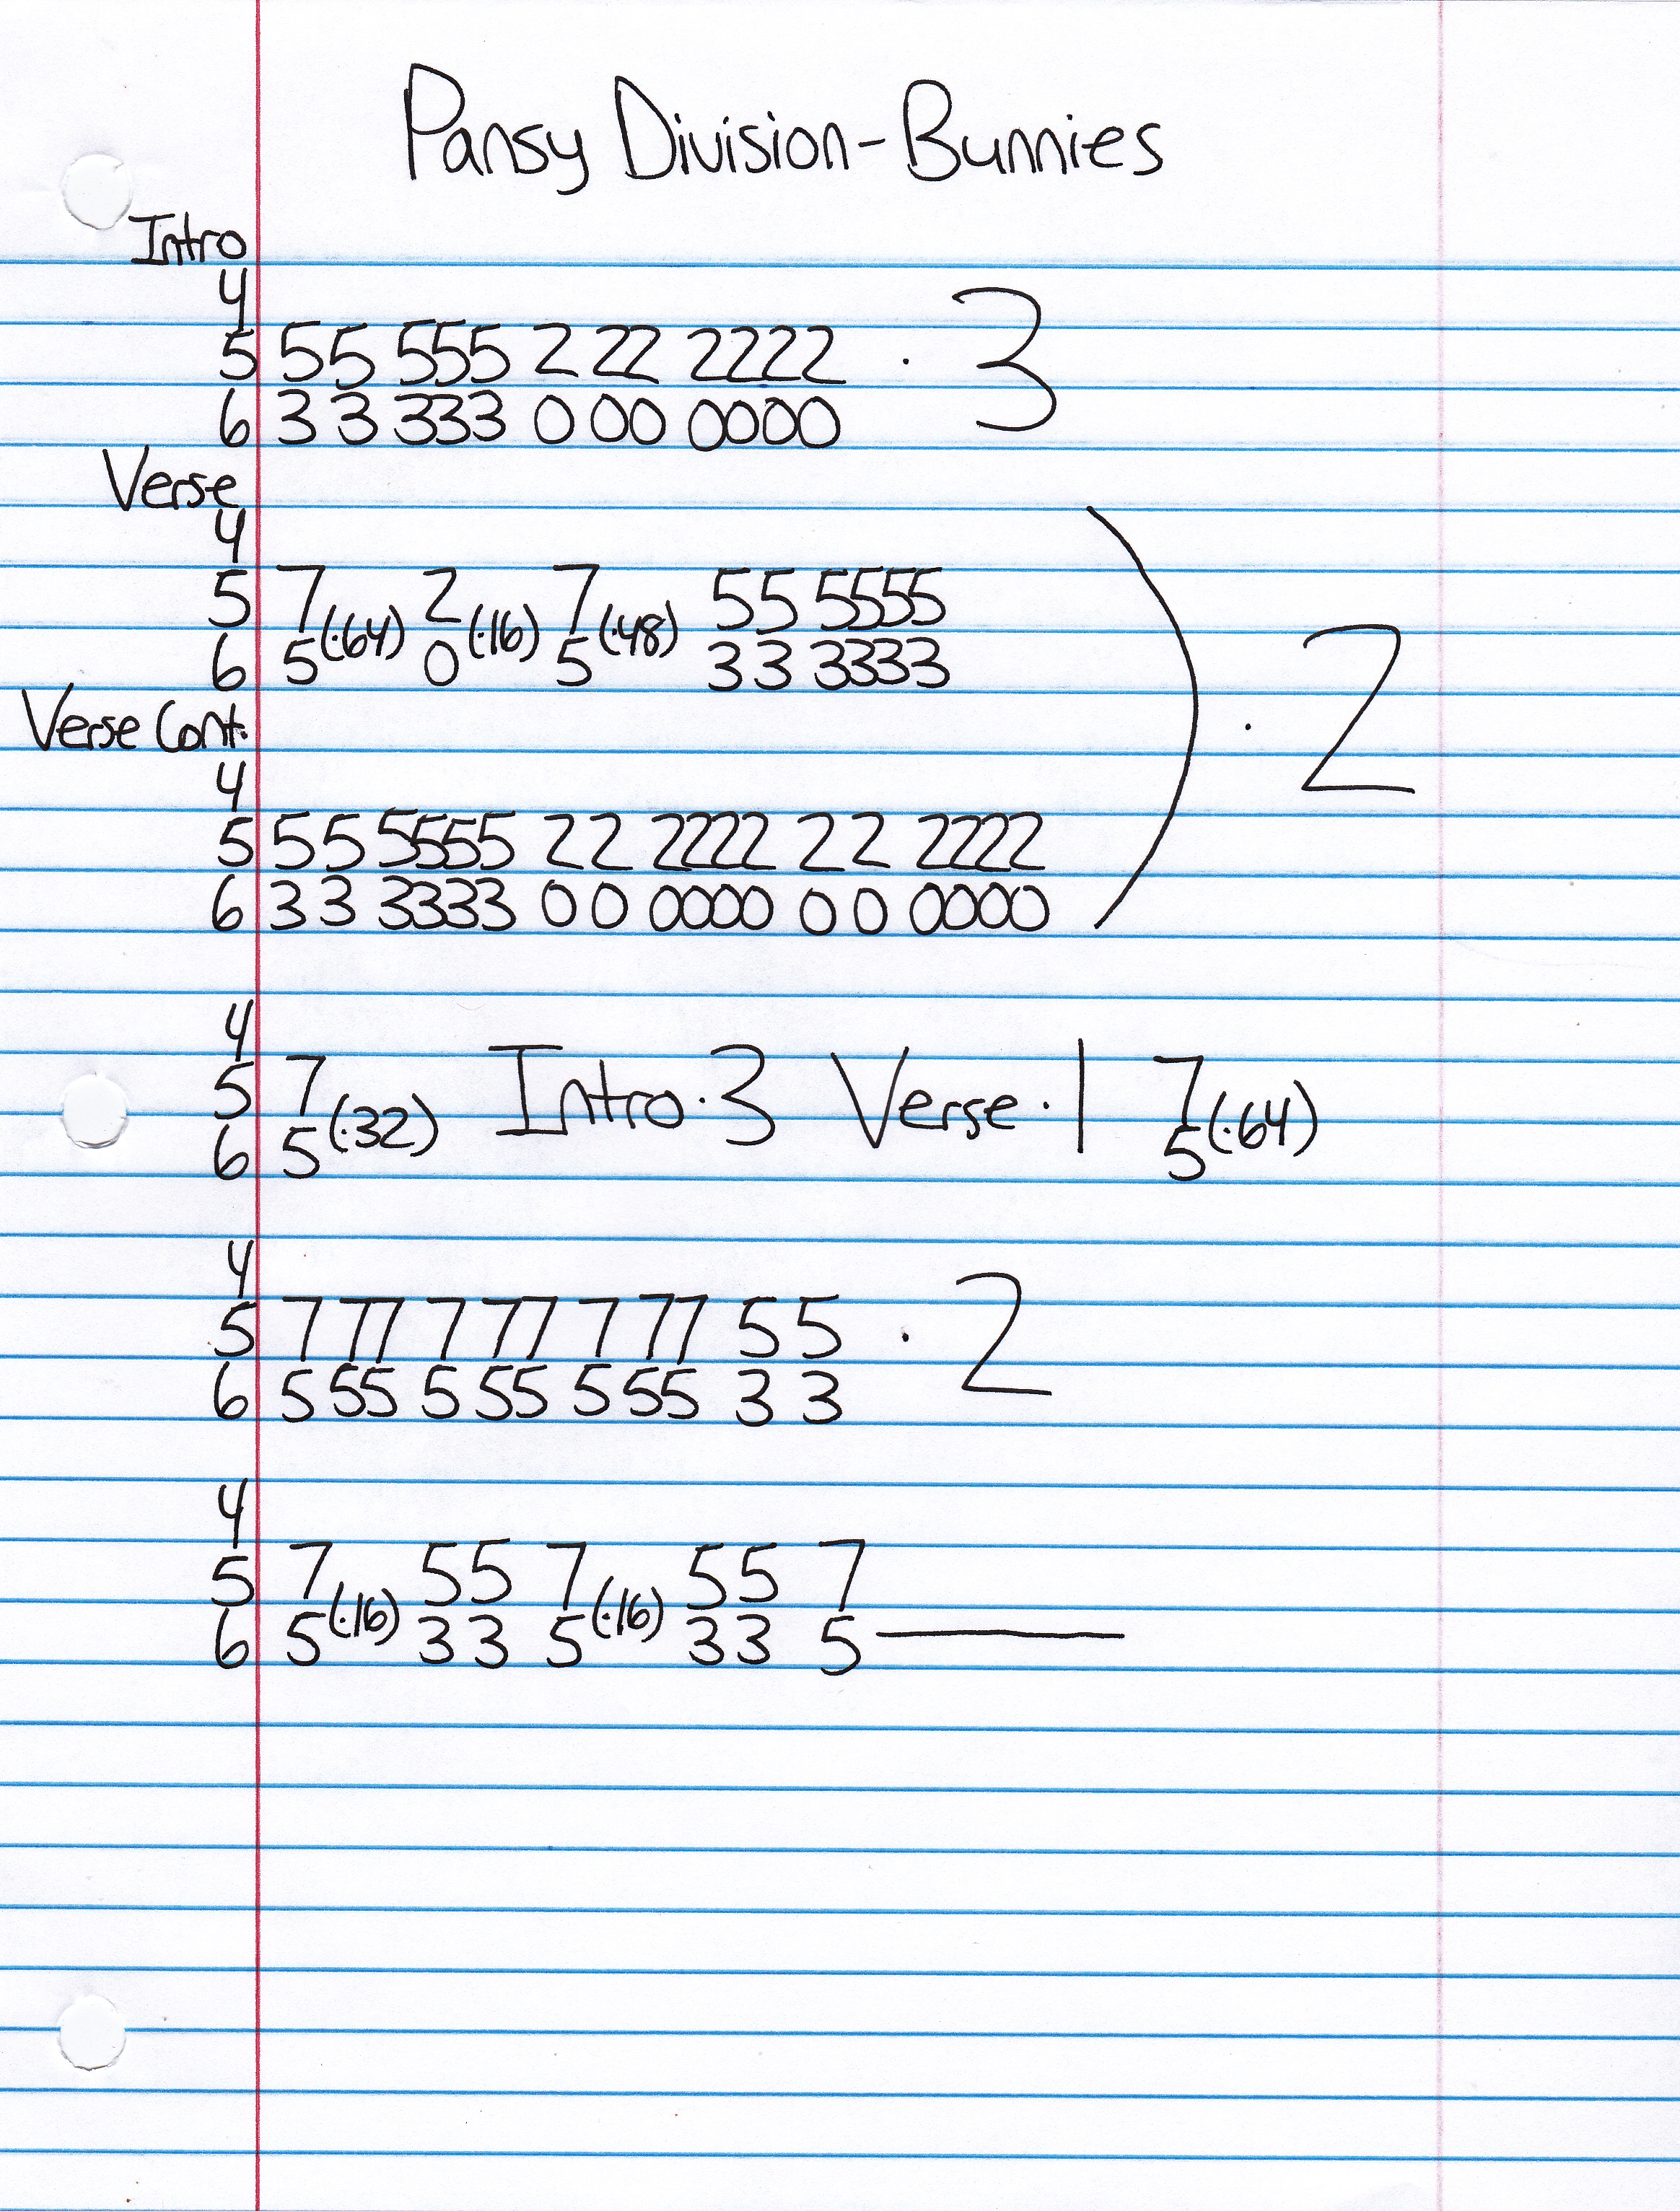 Pansy Division-Bunnies
Intro
4
5 55 555 2 22 2222 · 3
6 3 3 333 0 00 0000
Verse
4
5 7(·64) 2(·16) 7(·48) 55 5555
6 5 0 5 33 3333
· 2
Verse Cont.
4
5 55 5555 22 2222 22 2222
6 33 3333 00 0000 00 0000
4
5 7(·32) Intro·3 Verse·1 7(·64)
6 5 5
4
5 7 77 7 77 7 77 5 5 · 2
6 5 55 5 55 5 55 3 3
4
5 7(·16) 55 7(·16) 55 7
6 5 33 5 33 5